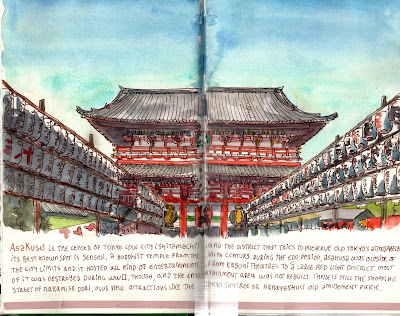 Asakusa is the center of Tokyo low city (shitamachi) and the district that tries to preserve old Tokyo's atmosphere.
Its best known spot is Sensoji, a Buddhist temple from the VII th century. During the Edo period, Asakusa was outside of
the city limits and it hosted all kind of entertainment, from kabuki theatres to a large red light district. Most
of it was destroyed during WWII, though, and the entertainment area was not rebuilt. There is still the shopping
street of Nakamise Dori, plus new attractions like the Tokyo Skytree or Hanayashiki old amusement park.